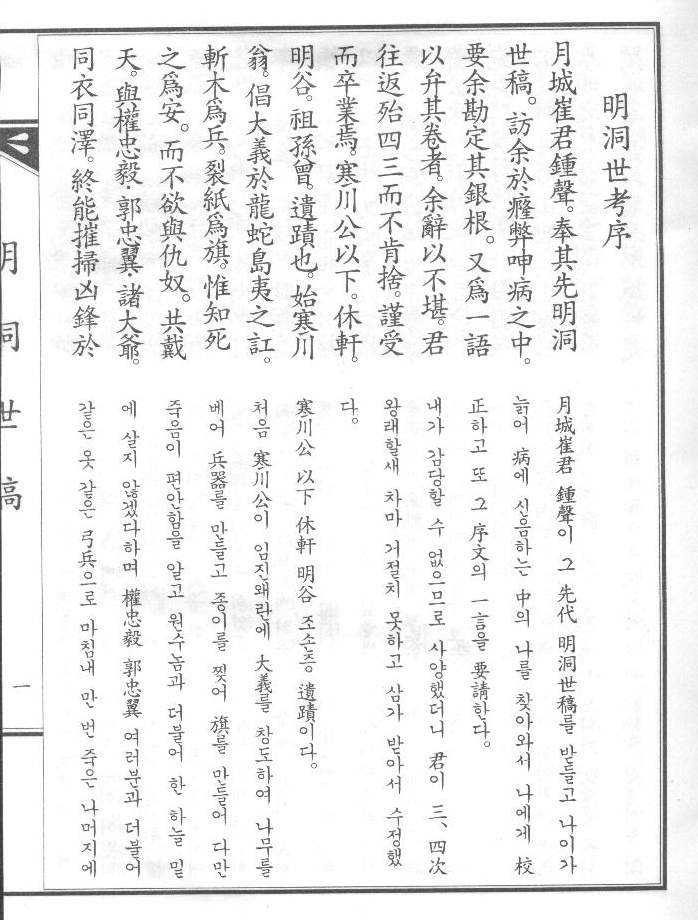 明洞世考序
月城崔君鍾聲。奉其先明洞
世稿。訪余於癃弊呻病之中。
要余勘定其銀根。又爲一語
以弁其卷者。余辭以不堪。君
往返殆四三而不肯捨。謹受
而卒業焉。寒川公以下。休軒。
明谷。祖孫曾。遺蹟也。始寒川
翁。倡大義於龍蛇島夷之訌。
斬木爲兵。裂紙爲旗。惟知死
之爲安。而不欲與仇奴。共戴
天。與權忠毅·郭忠翼·諸大爺。
同衣同澤。終能摧掃凶鋒於
月城崔君 鍾聲이 그 先代 明洞世稿를 받들고 나이가
늙어 病에 신음하는 中의 나를 찾아와서 나에게 校
正하고 또 그 序文의 一言을 要請한다。
내가 감당할 수 없으므로 사양했더니 君이 三、四次
왕래할새 차마 거절치 못하고 삼가 받아서 수정했
다。
寒川公 以下 休軒 明谷 조손증。遺蹟이다。
처음 寒川公이 임진왜란에 大義를 창도하여 나무를
베어 兵器를 만들고 종이를 찢어 旗를 만들어 다만
죽음이 편안함을 알고 원수놈과 더불어 한 하늘 밑
에 살지 않겠다하며 權忠毅 郭忠翼 여러분과 더불어
같은 옷 같은 弓兵으로 마침내 만 번 죽은 나머지에
明洞世稿
一